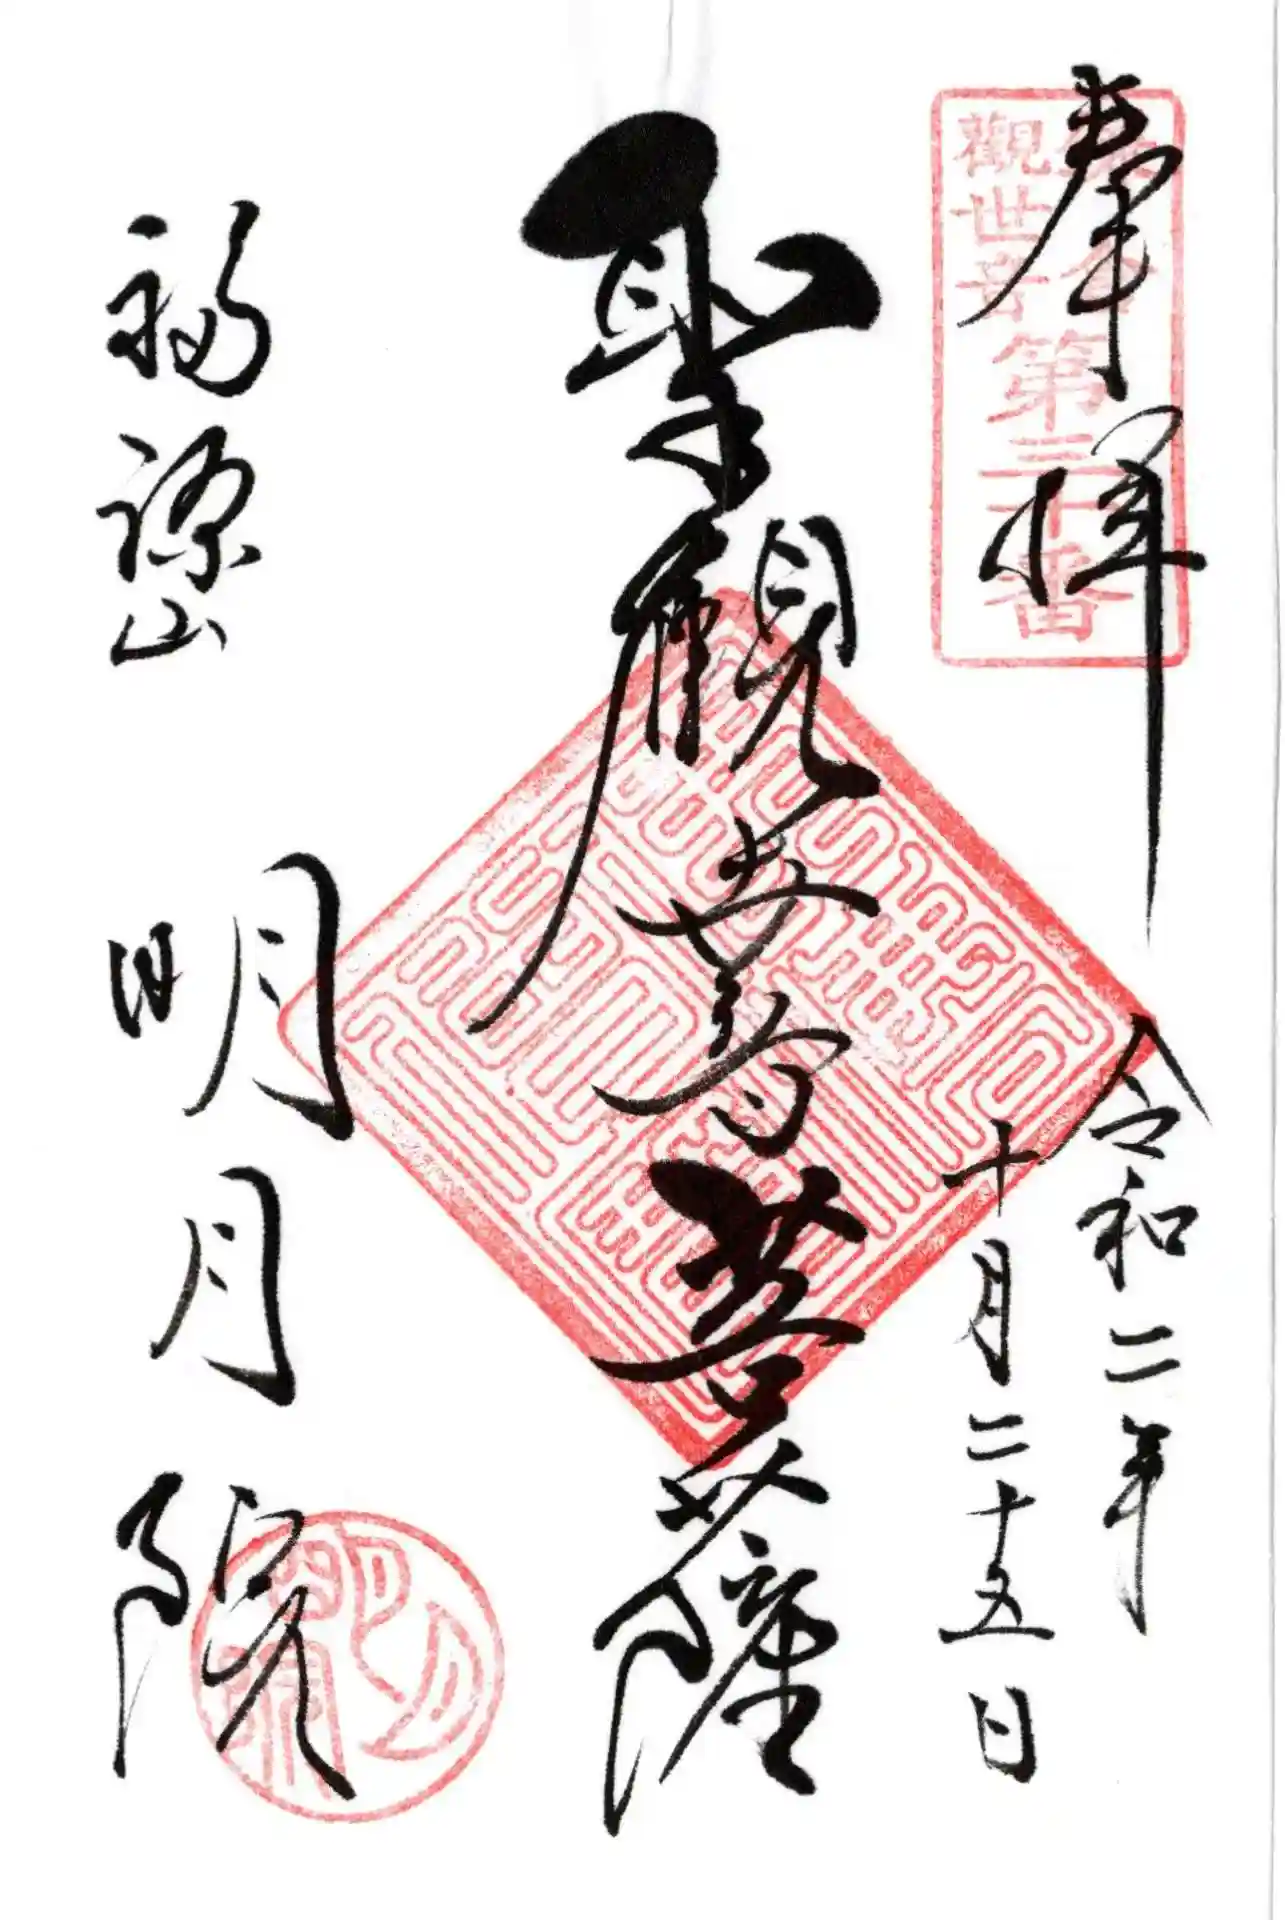 奉拝
鎌倉
觀世音第三十番
令和二年
十月二十五日
聖観世音菩薩
福源山
明月院